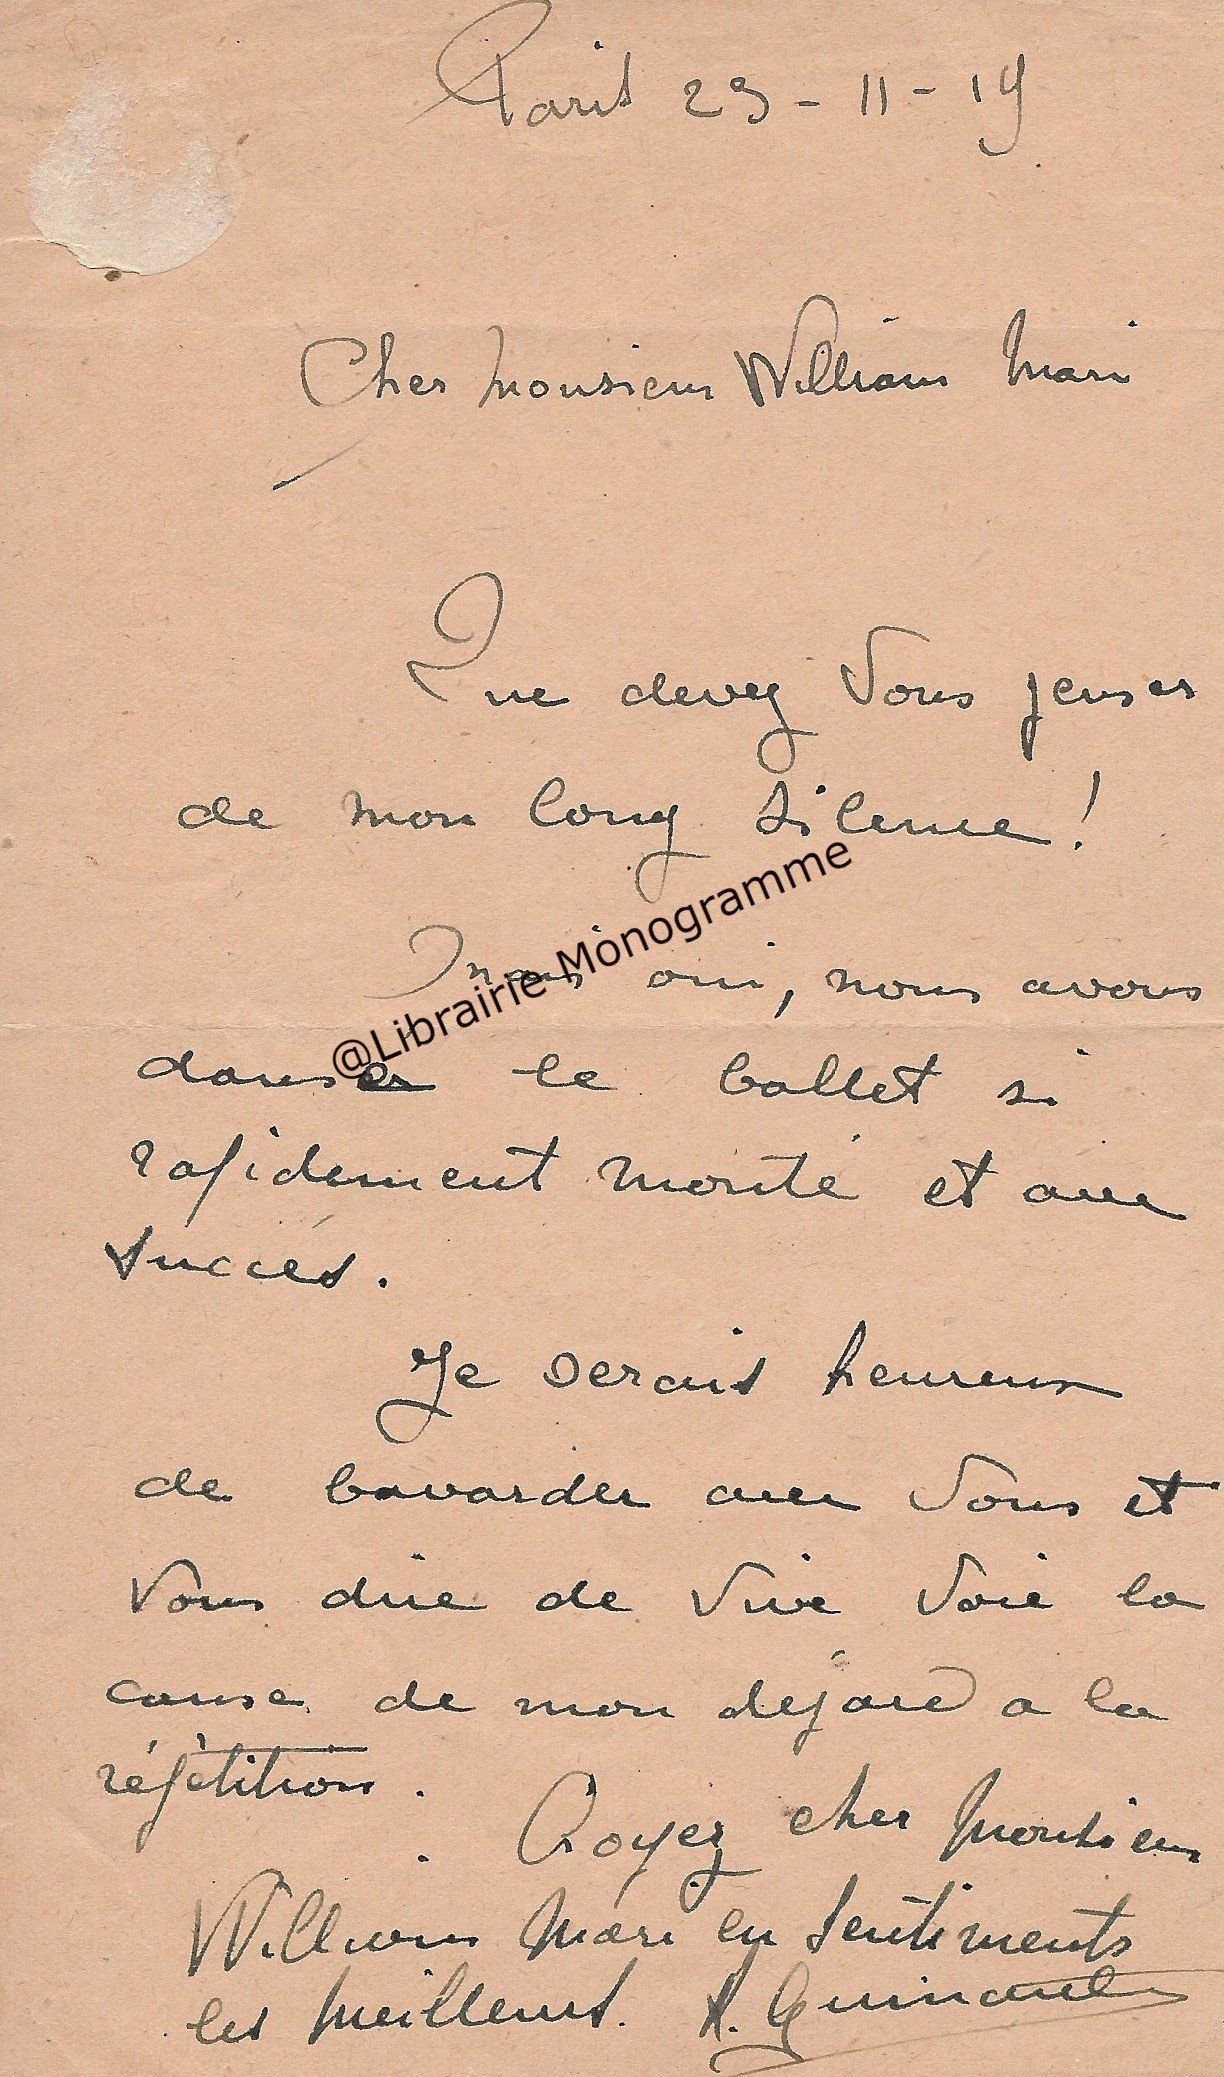 Paris 29-11-19
Cher Monsieur William Mari
Que devez Vous penser
de mon long silence!
Mais oui, nous avons
danser le ballet si
rapidement monté et avec
succés.
Je serais heureux
de bavarder avec Vous et
Vous dire de Vive Voie la
cause de mon dépard a la
répétition.
Croyez cher Monsieur
William Mari en sentiments
les meilleurs. R. Guinault
@Librairie Monogramme